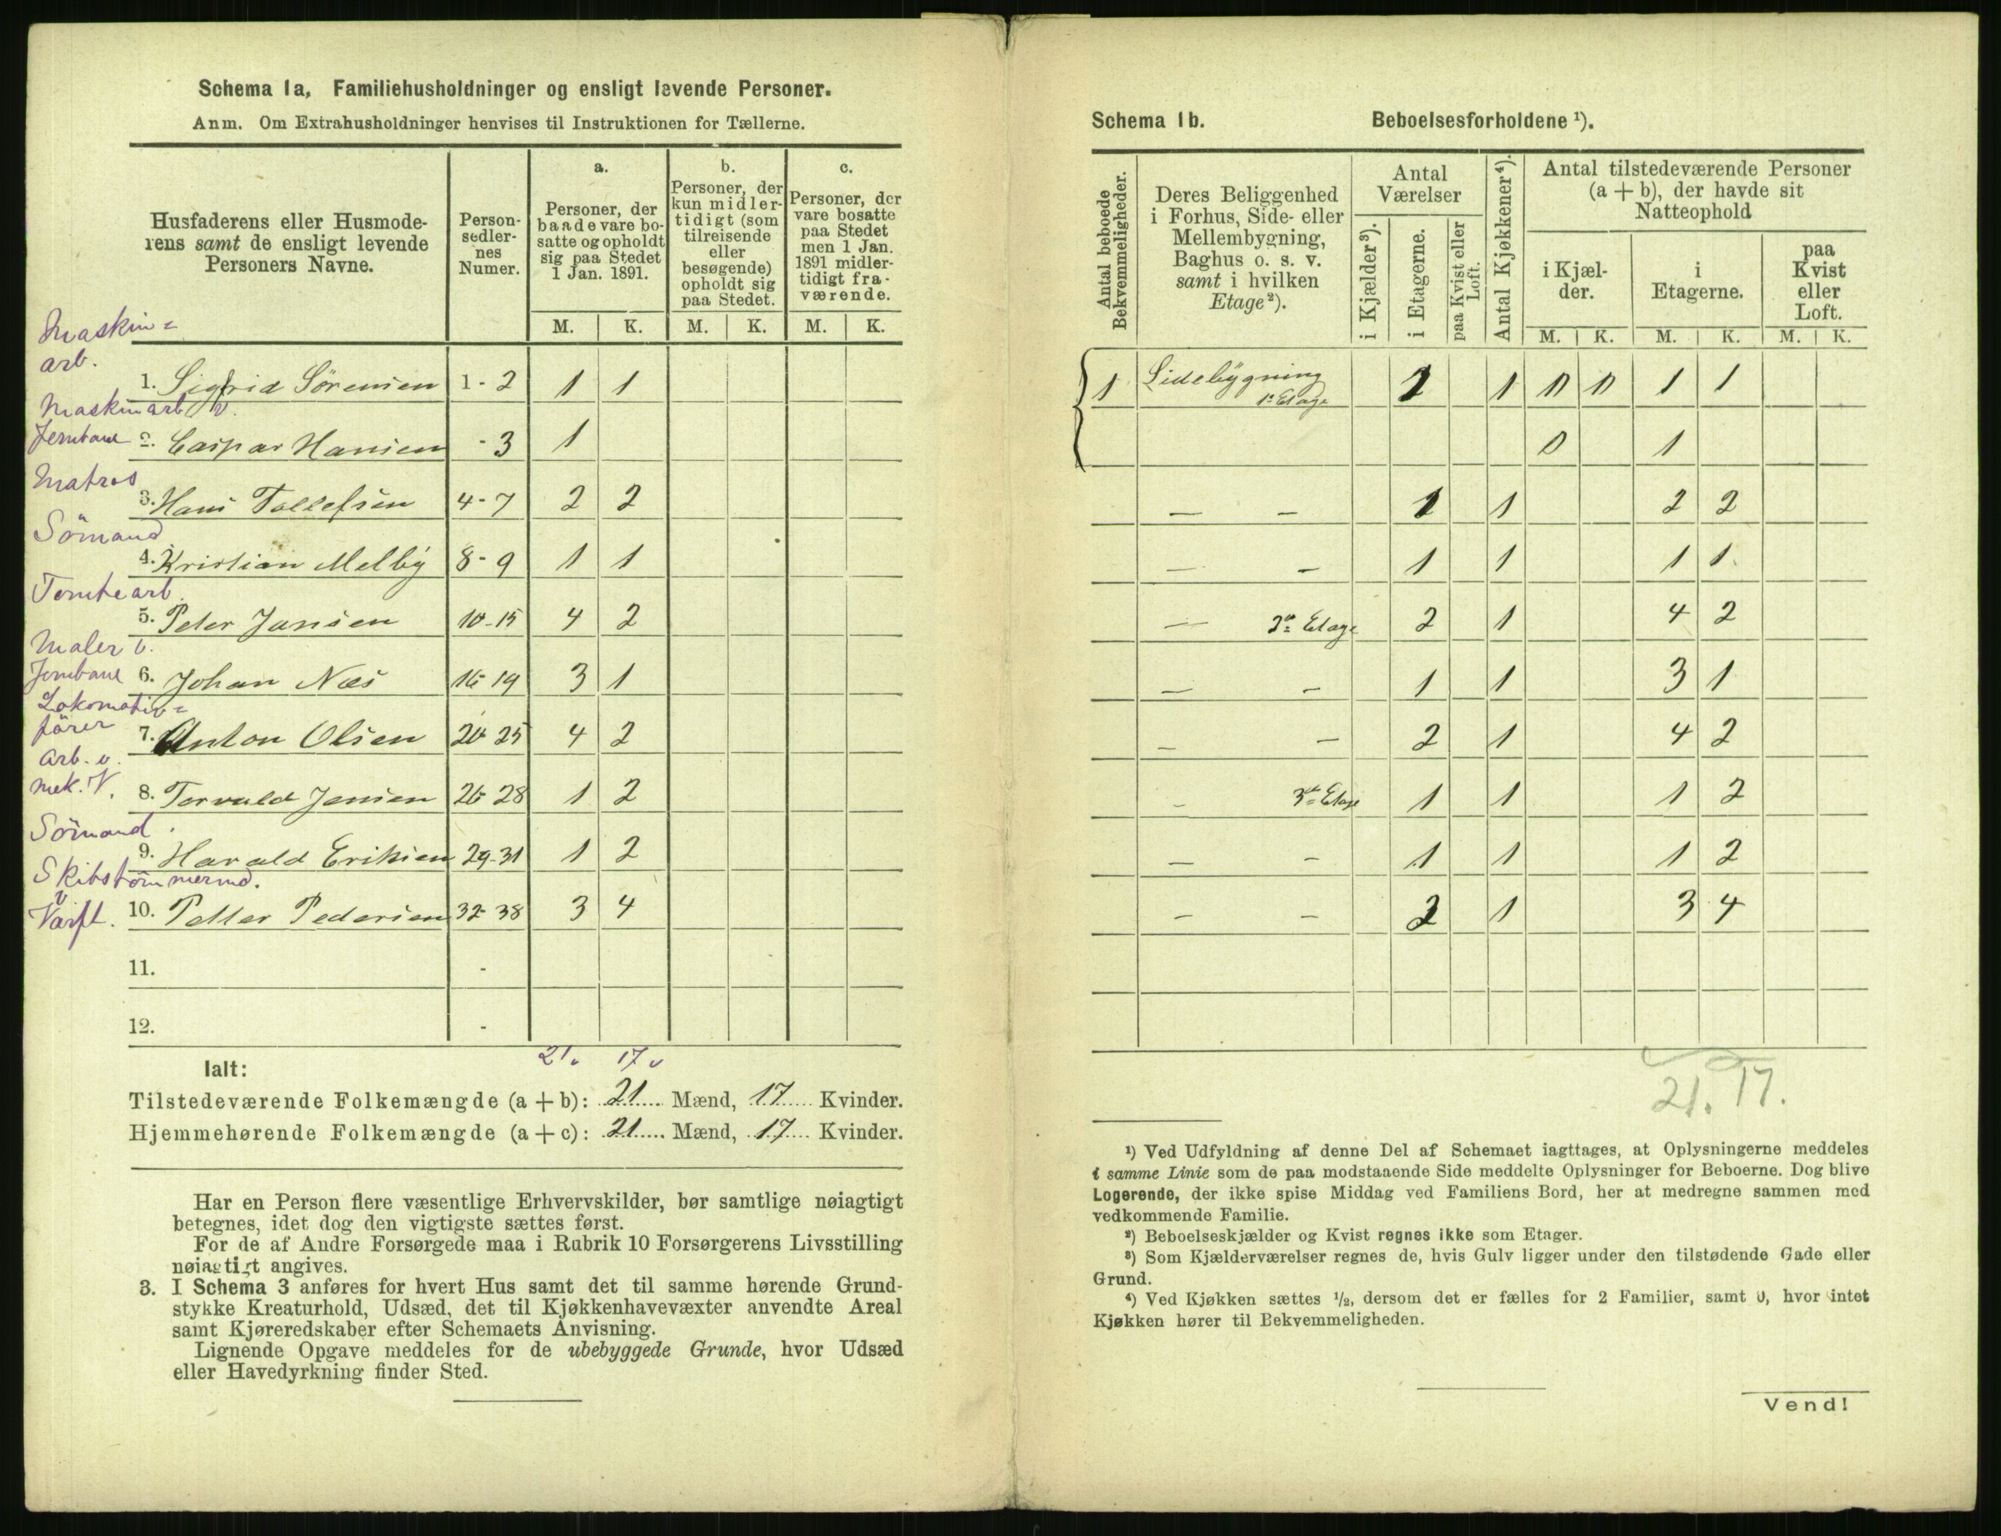 Schema 1a. Familiehusholdninger og ensligt levende Personer.
Anm. Om Extrahusholdninger henvises til Instruktionen for Tællerne.
Husfaderens eller Husmode-
rens samt de ensligt levende
Personers Navne.
Person-
sedler-
nes
Numer.
a.
Personer, der
baade vare bo-
satte og opholdt
sig paa Stedet
1 Jan. 1891.
b.
Personer, der
kun midler-
tidigt (som
tilreisende
eller
besøgende)
opholdt sig
paa Stedet.
c.
Personer, der
vare bosatte
paa Stedet
men 1 Jan.
1891 midler-
tidigt fra-
værende.
M. K. M. K. M. K.
Maskin=
arb.
1. Sigfrid Sörensen 1-2 1 1
Maskinarb v.
Jernbane 2. Caspar Hansen -3 1
Matros
3. Hans Tollefsen 4-7 2 2
Sömand
4. Kristian Melby 8-9 1 1
Tomtearb.
5. Peter Jansen 10-15 4 2
Maler v.
Jernbane 6. Johan Næs 16-19 3 1
Lokomotiv=
förer 7. Anton Olsen 20-25 4 2
Arb. v.
mek. V. 8. Torvald Jensen 26-28 1 2
Sömand.
9. Harald Eriksen 29-31 1 2
Skibstömmermd.
v
Værft. 10. Petter Pedersen 32-38 3 4
11. -
12. -
21. 17.
Ialt:
Tilstedeværende Folkemængde (a + b): 21 Mænd, 17 Kvinder.
Hjemmehørende Folkemængde (a + c): 21 Mænd, 17 Kvinder.
Har en Person flere væsentlige Erhvervskilder, bør samtlige nøiagtigt
betegnes, idet dog den vigtigste sættes først.
For de af Andre Forsørgede maa i Rubrik 10 Forsørgerens Livsstilling
nøiagtigt angives.
3. I Schema 3 anføres for hvert Hus samt det til samme hørende Grund-
stykke Kreaturhold, Udsæd, det til Kjøkkenhavevæxter anvendte Areal
samt Kjøreredskaber efter Schemaets Anvisning.
Lignende Opgave meddeles for de ubebyggede Grunde, hvor Udsæd
eller Havedyrkning finder Sted.
Schema 1b. Beboelsesforholdene ¹).
Antal beboede
Bekvemmeligheder.
Deres Beliggenhed
i Forhus, Side- eller
Mellembygning,
Baghus o. s. v.
samt i hvilken
Etage ²).
Antal
Værelser
i Kjælder ³).
i Etagerne.
paa Kvist eller
Loft.
Antal Kjøkkener ⁴).
Antal tilstedeværende Personer
(a + b), der havde sit
Natteophold
i Kjæl-
der.
i
Etagerne.
paa
Kvist
eller
Loft.
M. K. M. K. M. K.
1 Sidebygning 1 0 0 1 1
1ᵉ Etage
0 1
— — 1 2 2
— — 1 1 1 1
— 2ⁿ Etage 2 1 4 2
— — 1 1 3 1
— — 2 1 4 2
— 3ᵈᵉ Etage 1 1 1 2
— — 1 1 1 2
— — 1 3 4
21. 17.
¹) Ved Udfyldning af denne Del af Schemaet iagttages, at Oplysningerne meddeles
i samme Linie som de paa modstaaende Side meddelte Oplysninger for Beboerne. Dog blive
Logerende, der ikke spise Middag ved Familiens Bord, her at medregne sammen med
vedkommende Familie.
²) Beboelseskjælder og Kvist regnes ikke som Etager.
³) Som Kjælderværelser regnes de, hvis Gulv ligger under den tilstødende Gade eller
Grund.
⁴) Ved Kjøkken sættes ½, dersom det er fælles for 2 Familier, samt 0, hvor intet
Kjøkken hører til Bekvemmeligheden.
Vend!